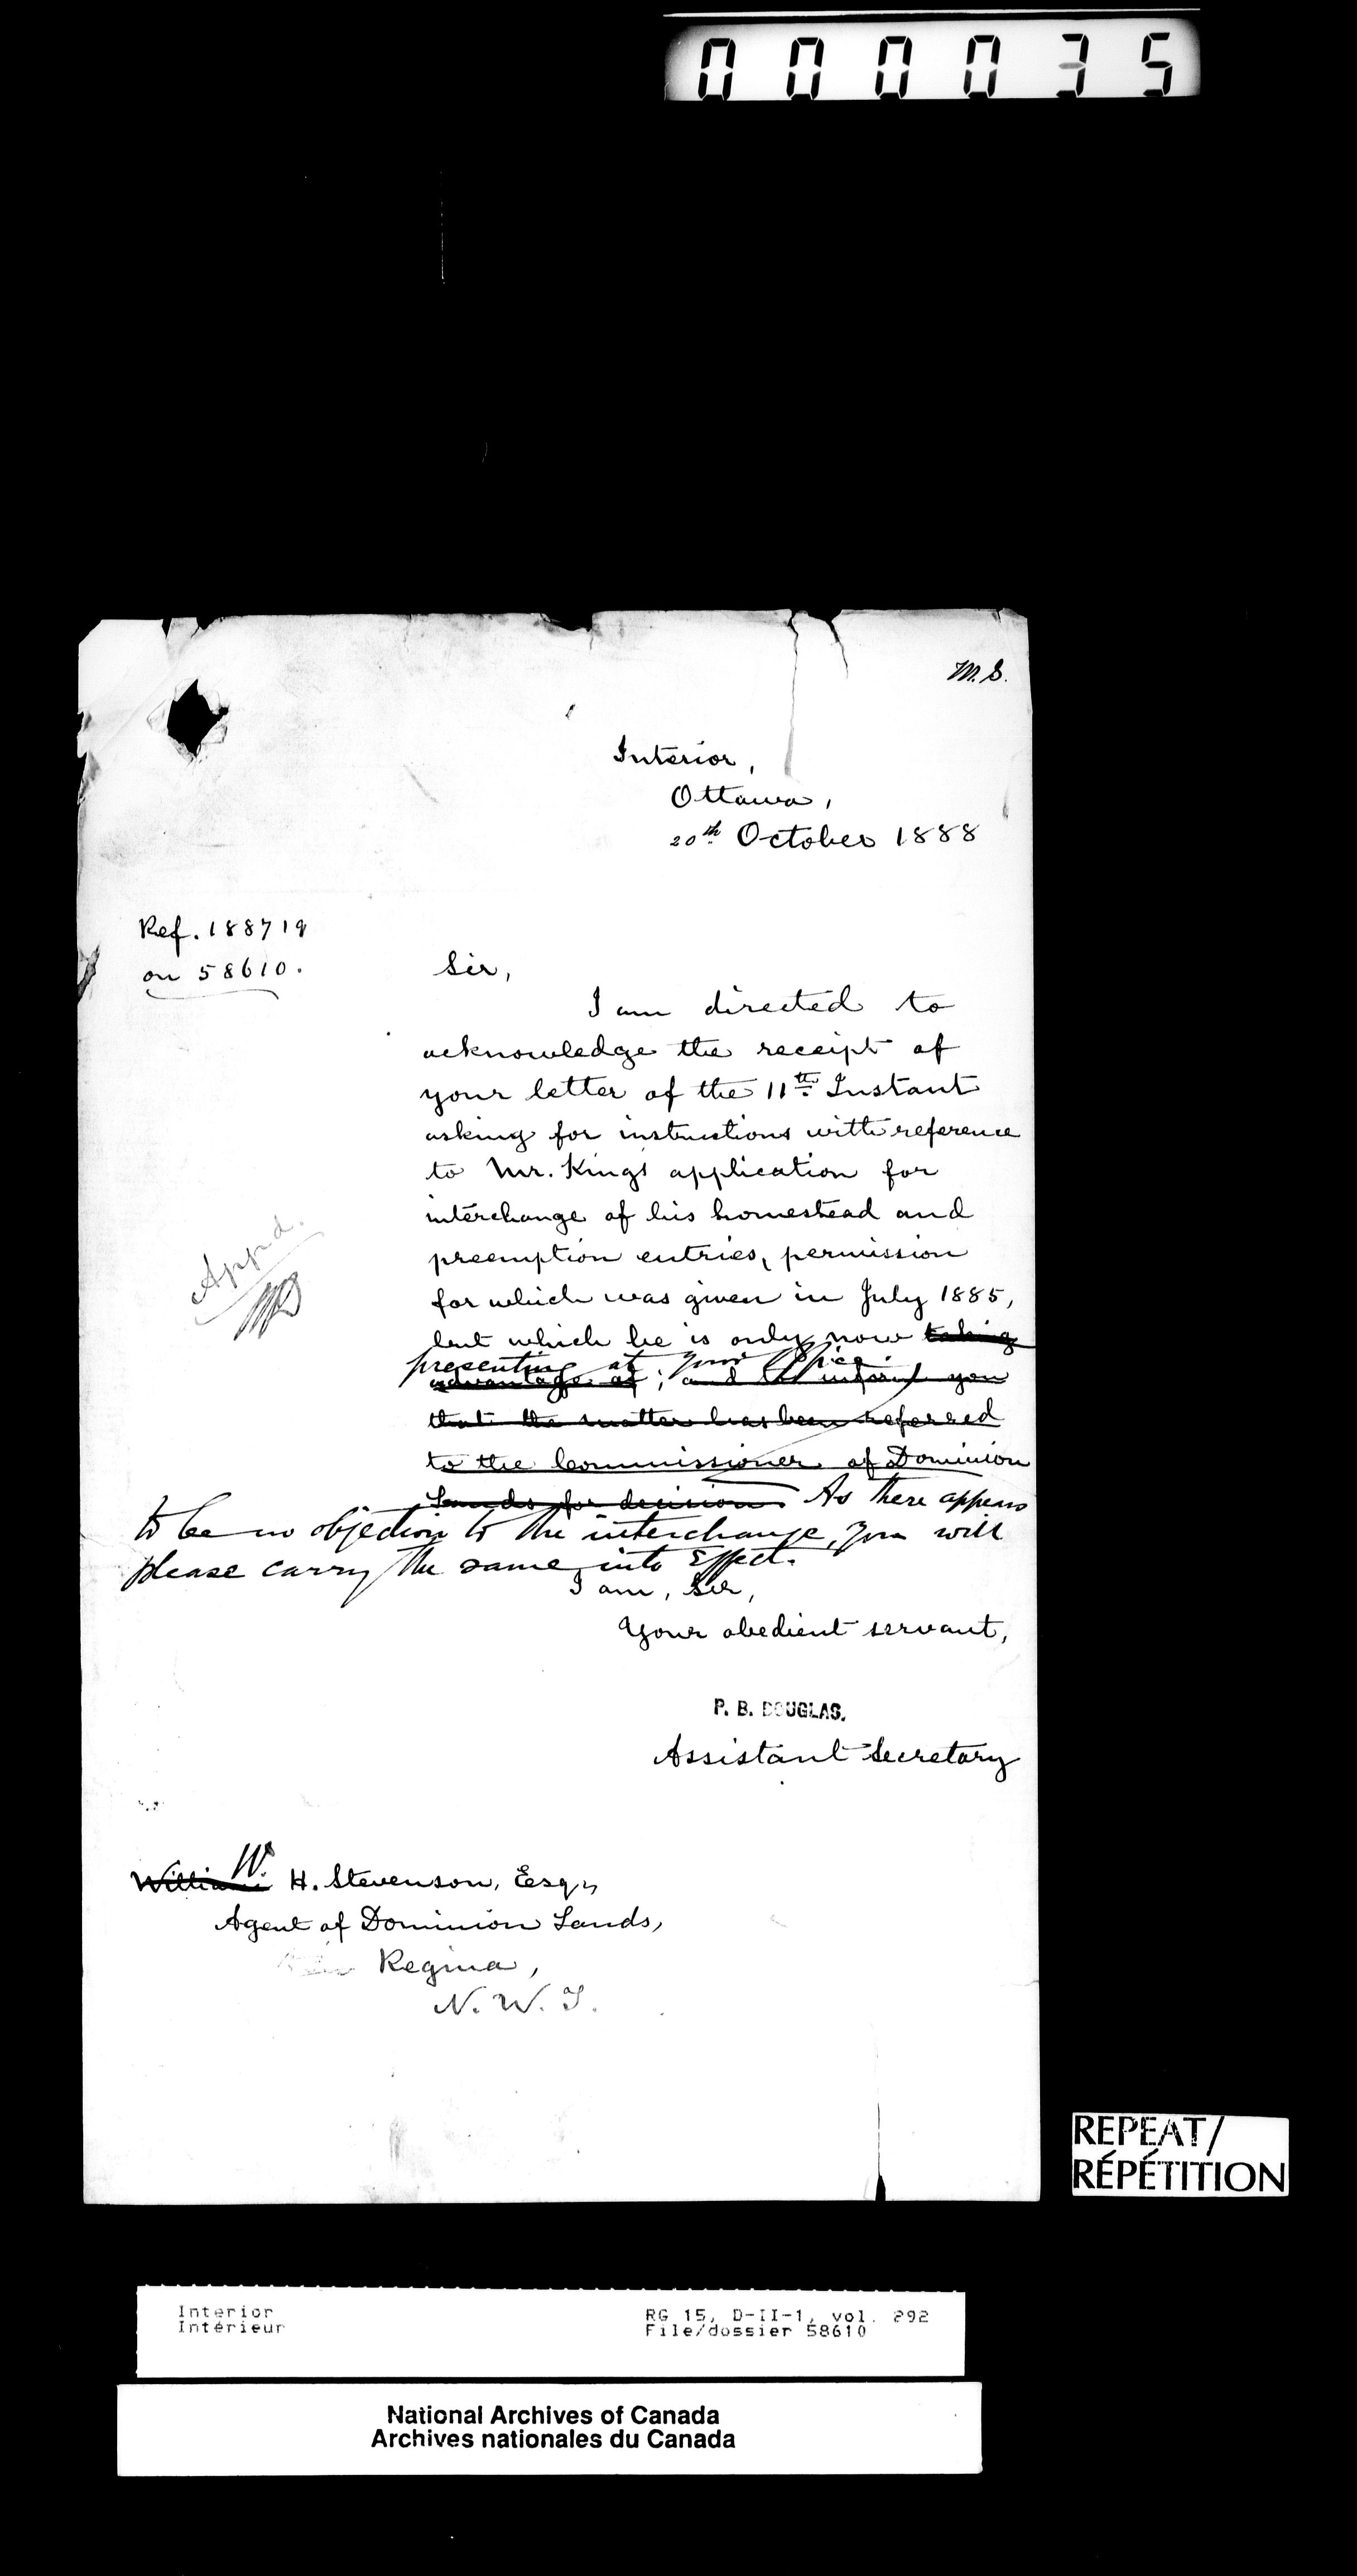 000035
M.S.
Interior,
Ottawa,
20th October 1888
Ref. 188719
on 58610.
Sir,
I am directed to
acknowledge the receipt of
your letter of the 11th Instant
asking for instructions with reference
to Mr. King's application for
interchange of his homestead and
preemption entries, permission
for which was given in July 1885,
but which he is only now taking
presenting at your office.
advantage of; and to inform you
that the matter has been referred
to the Commissioner of Dominion
Lands for decision. As there appears
to be no objection to the interchange, you will
please carry the same into Effect.
Appd.
I am, Sir,
Your obedient servant,
P. B. DOUGLAS.
Assistant Secretary
W.
William H. Stevenson, Esq.,
Agent of Dominion Lands,
Regina,
N.W.T.
REPEAT/
RÉPÉTITION
Interior
Intérieur
RG 15, D-II-1, vol. 292
File/dossier 58610
National Archives of Canada
Archives nationales du Canada